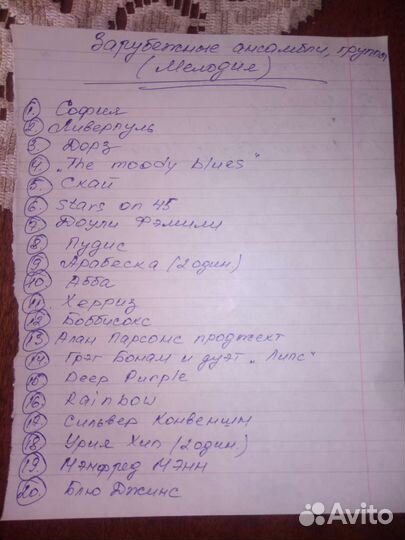 Зарубежные ансамбли, группы
(Мелодия)
1. София
2. Ливерпуль
3. Дорз
4. „The moody blues"
5. Скай
6. Stars on 45
7. Доули Фэмили
8. Пудис
9. Арабеска (2 один)
10. Абба
11. Херриз
12. Боббисокс
13. Алан Парсонс проджект
14. Грэг Бонам и дуэт „Липс"
15. Deep Purple
16. Rainbow
17. Сильвер Конвеншн
18. Урия Хип (2 один)
19. Мэнфред Мэнн
20. Блю Джинс
Avito